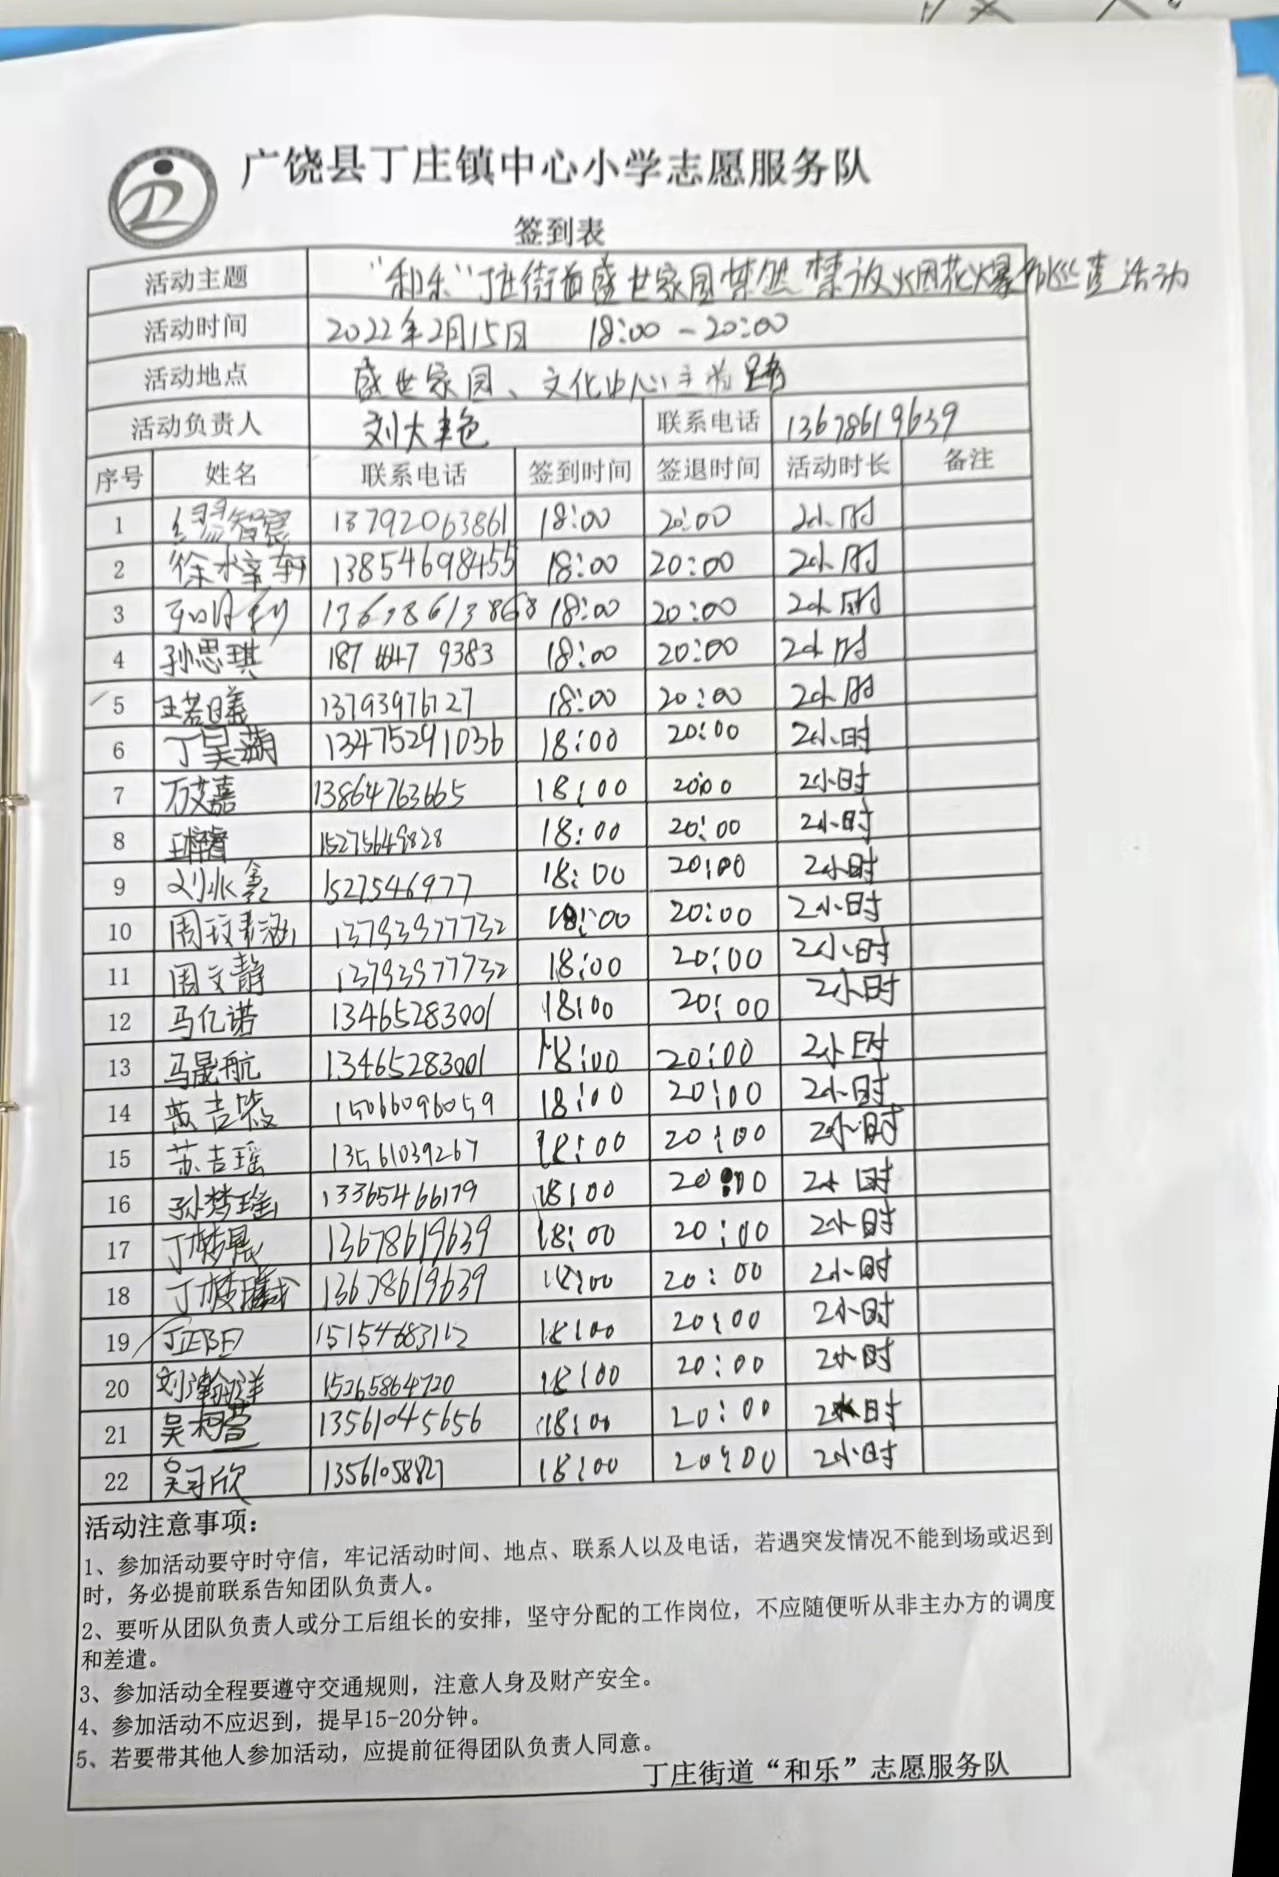 广饶县丁庄镇中心小学志愿服务队
签到表
活动主题 "和乐"丁庄街道盛世家园禁燃禁放烟花爆竹巡查活动
活动时间 2022年2月15日 18:00-20:00
活动地点 盛世家园、文化中心主为路
活动负责人 刘大艳 联系电话 13678619639
序号 姓名 联系电话 签到时间 签退时间 活动时长 备注
1 13792063861 18:00 20:00 2小时
2 徐梓轩 13854698455 18:00 20:00 2小时
3 18:00 20:00 2小时
4 孙思琪 18766479383 18:00 20:00 2小时
5 王若曦 18:00 20:00 2小时
6 丁昊菡 13475291036 18:00 20:00 2小时
7 万艾嘉 13864763665 18:00 20:00 2小时
8 15275649828 18:00 20:00 2小时
9 刘冰鑫 1527546977 18:00 20:00 2小时
10 13793977732 18:00 20:00 2小时
11 周文静 13793977732 18:00 20:00 2小时
12 马亿诺 13465283001 18:00 20:00 2小时
13 马晟航 13465283001 18:00 20:00 2小时
14 15066096059 18:00 20:00 2小时
15 苏吉瑶 13561039267 18:00 20:00 2小时
16 孙梦瑶 13365466179 18:00 20:00 2小时
17 丁梓晨 13678619639 18:00 20:00 2小时
18 13678619639 18:00 20:00 2小时
19 15154683112 18:00 20:00 2小时
20 刘瀚洋 15265864720 18:00 20:00 2小时
21 吴柯萱 13561045656 18:00 20:00 2小时
22 吴可欣 1356105882 18:00 20:00 2小时
活动注意事项：
1、参加活动要守时守信，牢记活动时间、地点、联系人以及电话，若遇突发情况不能到场或迟到
时，务必提前联系告知团队负责人。
2、要听从团队负责人或分工后组长的安排，坚守分配的工作岗位，不应随便听从非主办方的调度
和差遣。
3、参加活动全程要遵守交通规则，注意人身及财产安全。
4、参加活动不应迟到，提早15-20分钟。
5、若要带其他人参加活动，应提前征得团队负责人同意。
丁庄街道“和乐”志愿服务队